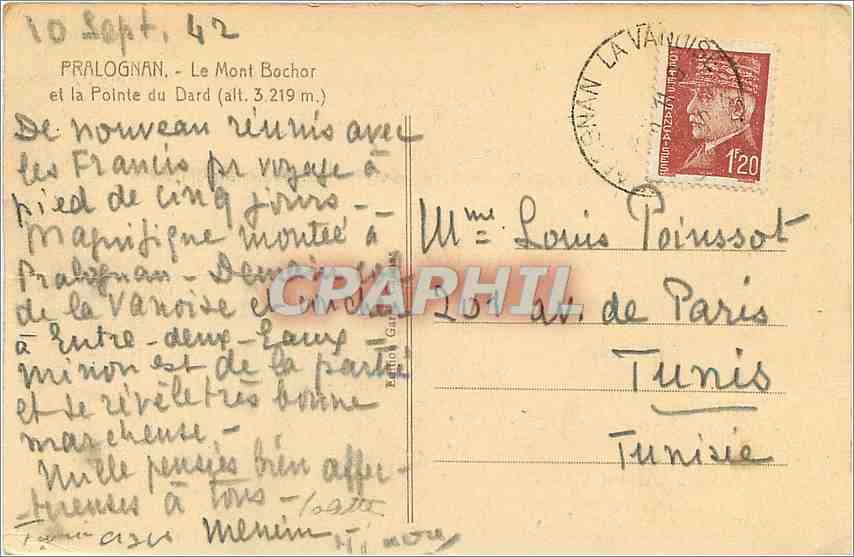 10 Sept. 42
PRALOGNAN. - Le Mont Bochor
et la Pointe du Dard (alt. 3.219 m.)
De nouveau réunis avec
les Francis pr voyage à
pied de cinq jours -
Magnifique montée à
Pralognan - Demain col
de la Vanoise et coucher
à Entre-deux-Eaux -
Minon est de la partie
et se révèle très bonne
marcheuse. -
Mille pensées bien affec-
tueuses à tous -
Menem
Edition
LA VANOISE
POSTES FRANÇAISES
1F20
Mme Louis Poinssot
201 av. de Paris
Tunis
Tunisie
CPAPHIL